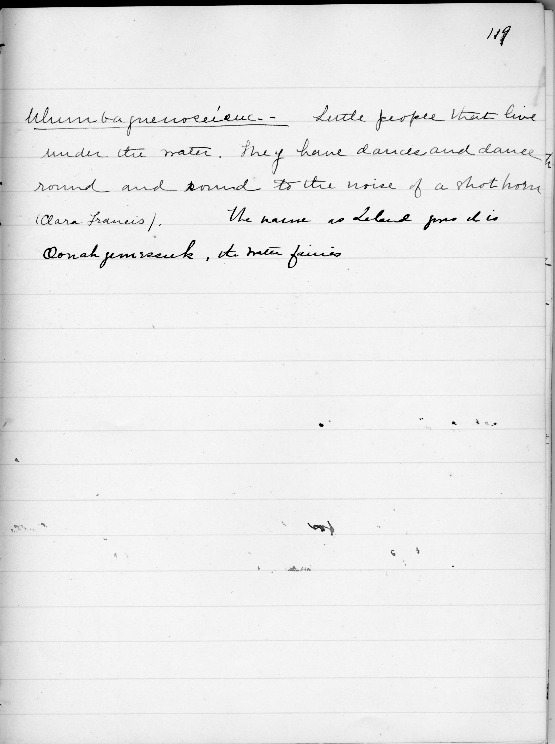 119
Ulumbaguenoséiuc - Little people that live
under the water. They have dances and dance
round and round to the noise of a shot horn
(Clara Francis). The name as Leland gives it is
Oonahgemessuk, the water fairies